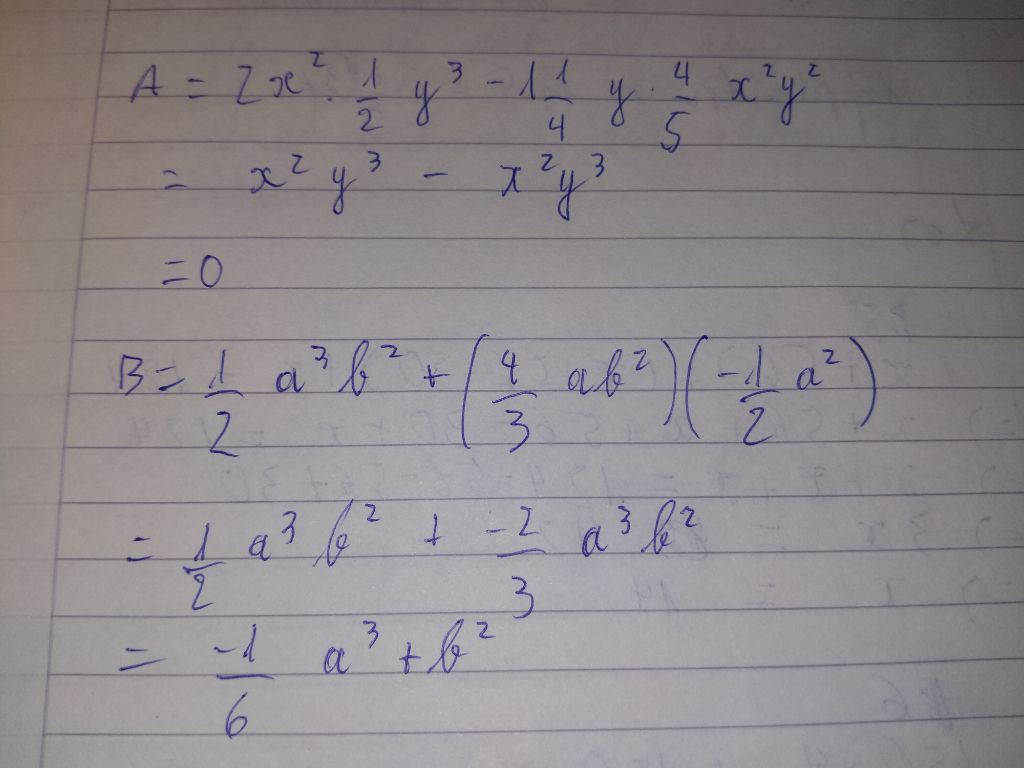 A = 2x² · 1/2 y³ - 1 1/4 y · 4/5 x²y²
= x² y³ - x²y³
= 0
B = 1/2 a³ b² + (4/3 ab²)(-1/2 a²)
= 1/2 a³ b² + -2/3 a³b²
= -1/6 a³ + b²